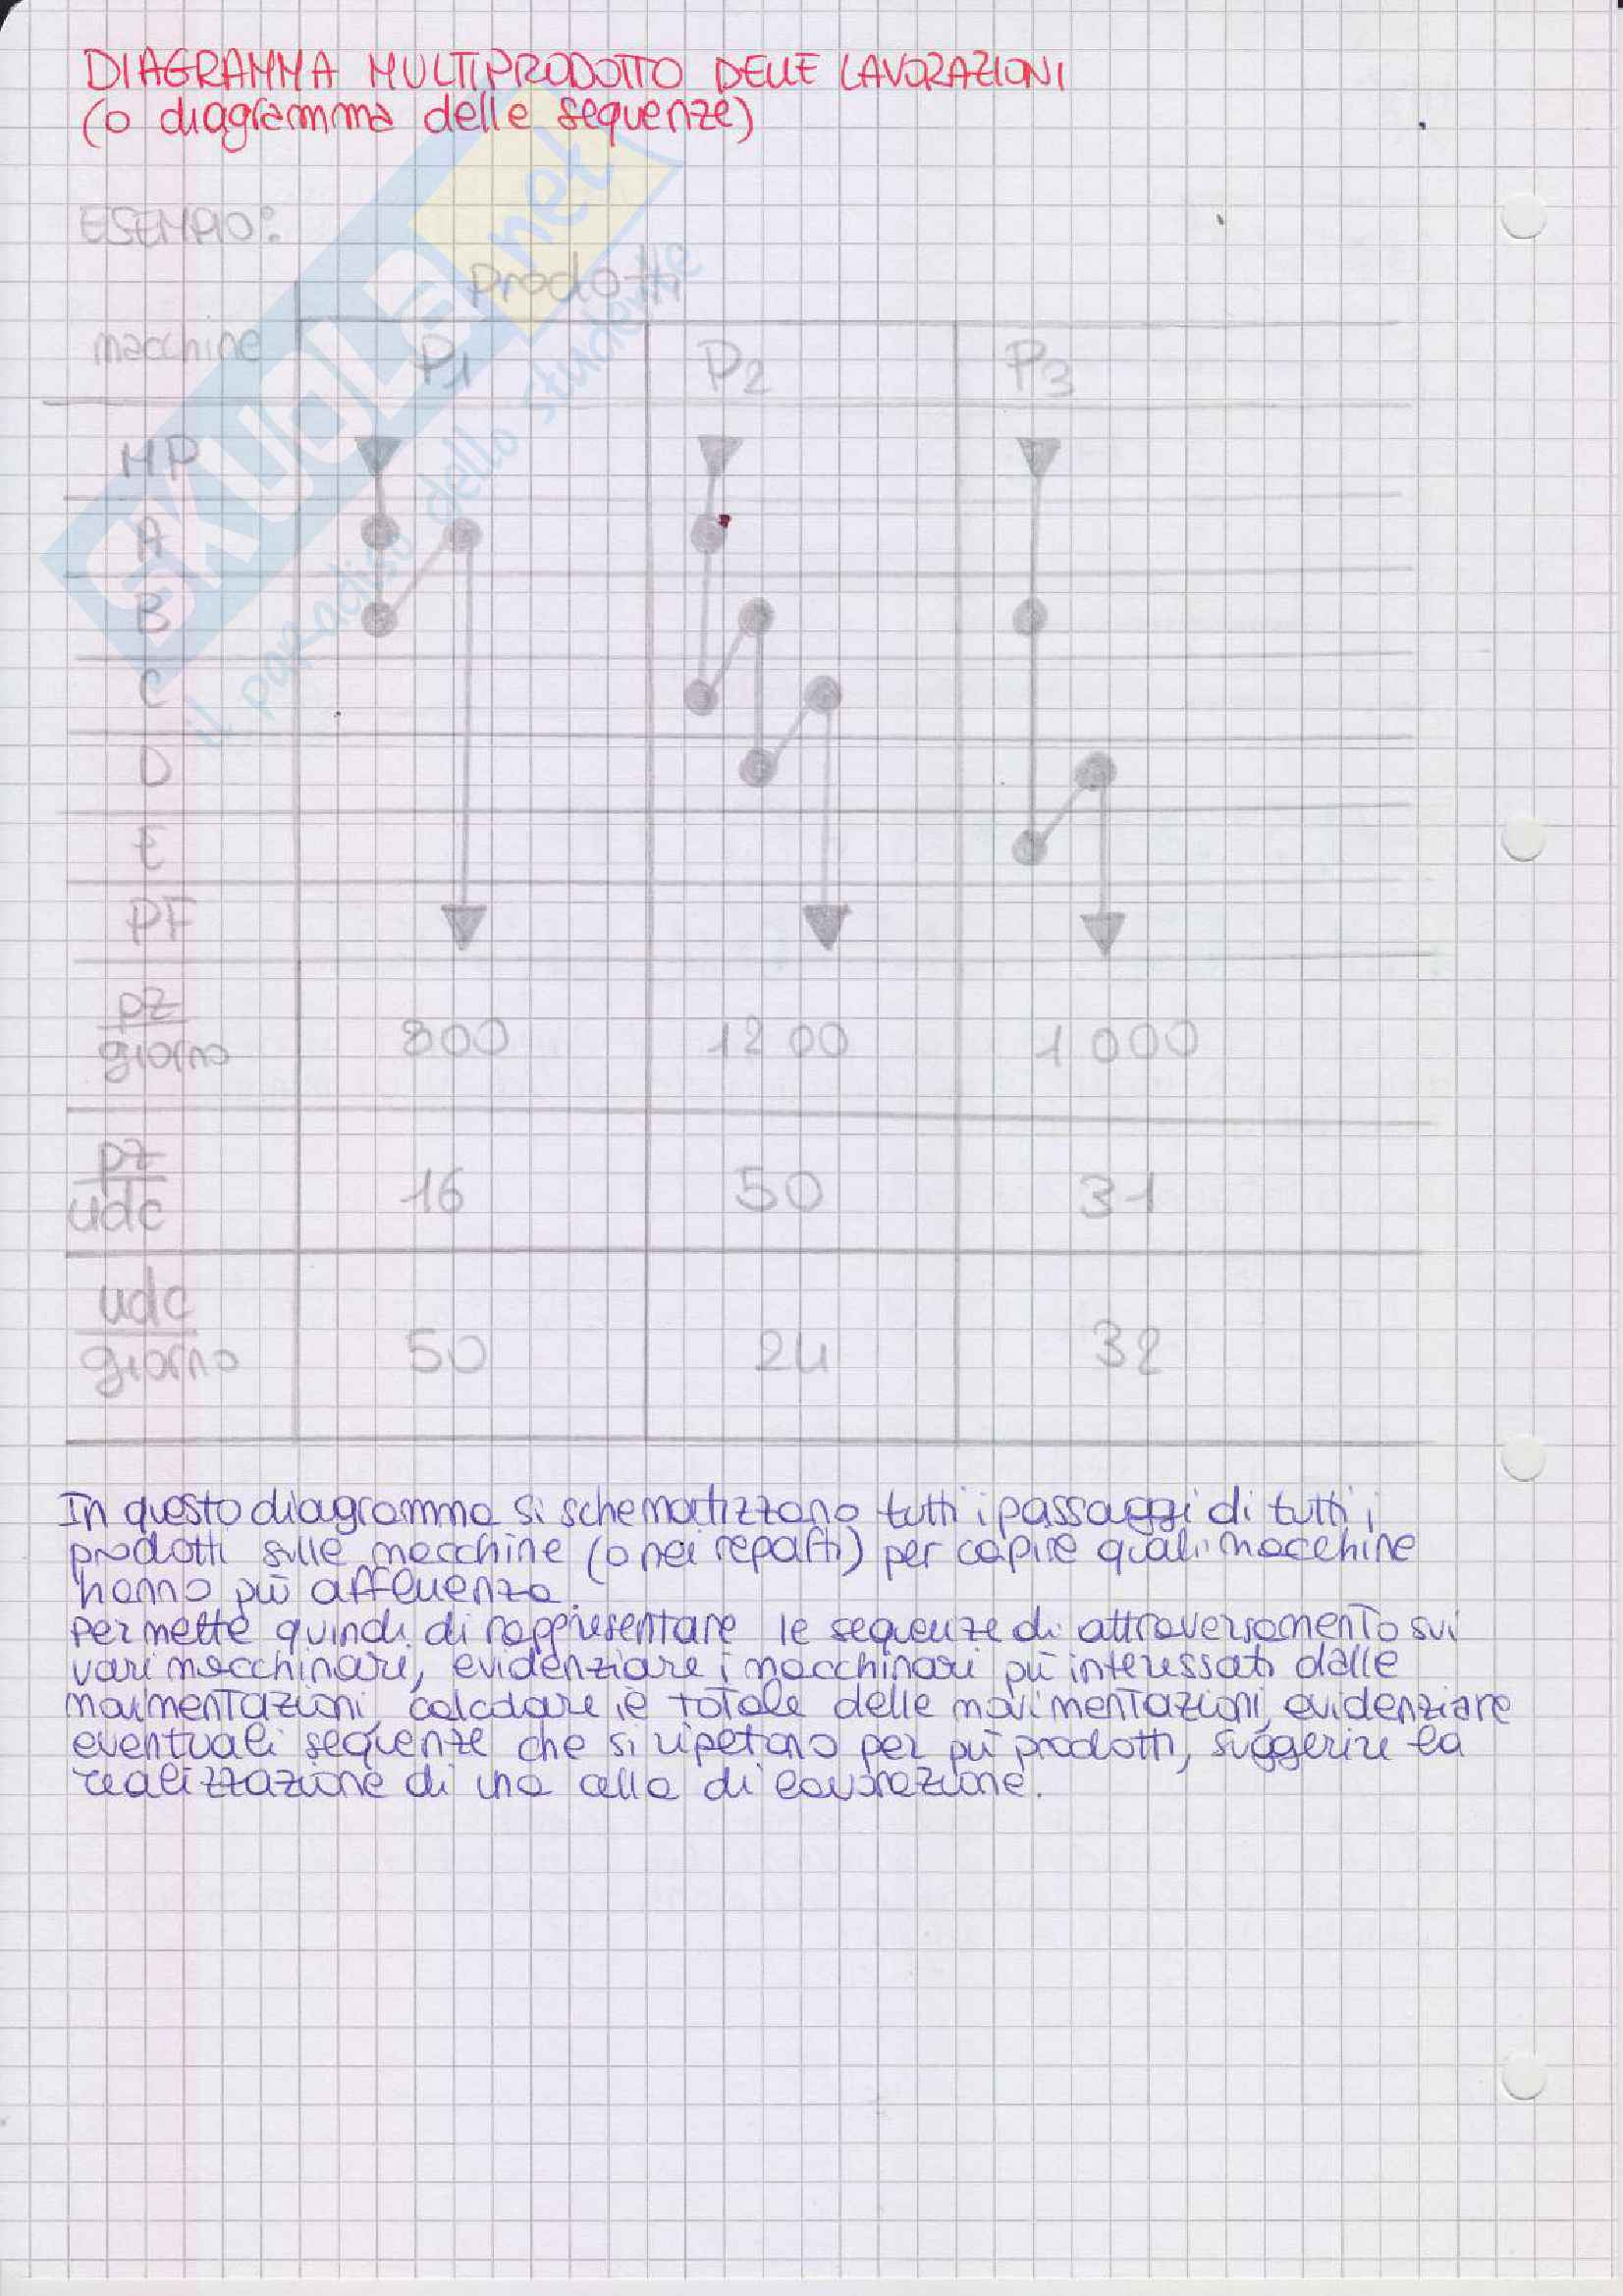 DIAGRAMMA MULTIPRODOTTO DELLE LAVORAZIONI
(o diagramma delle sequenze)
ESEMPIO:
Prodotti
macchine P1 P2 P3
MP
A
B
C
D
E
PF
pz/giorno 800 1200 1000
pz/udc 16 50 31
udc/giorno 50 24 32
In questo diagramma si schematizzano tutti i passaggi di tutti i
prodotti sulle macchine (o nei reparti) per capire quali macchine
hanno più affluenza.
Permette quindi di rappresentare le sequenze di attraversamento sui
vari macchinari, evidenziare i macchinari più interessati dalle
movimentazioni, calcolare il totale delle movimentazioni, evidenziare
eventuali sequenze che si ripetono per più prodotti, suggerire la
realizzazione di una cella di lavorazione.
SKUOLA.net
il paradiso dello studente